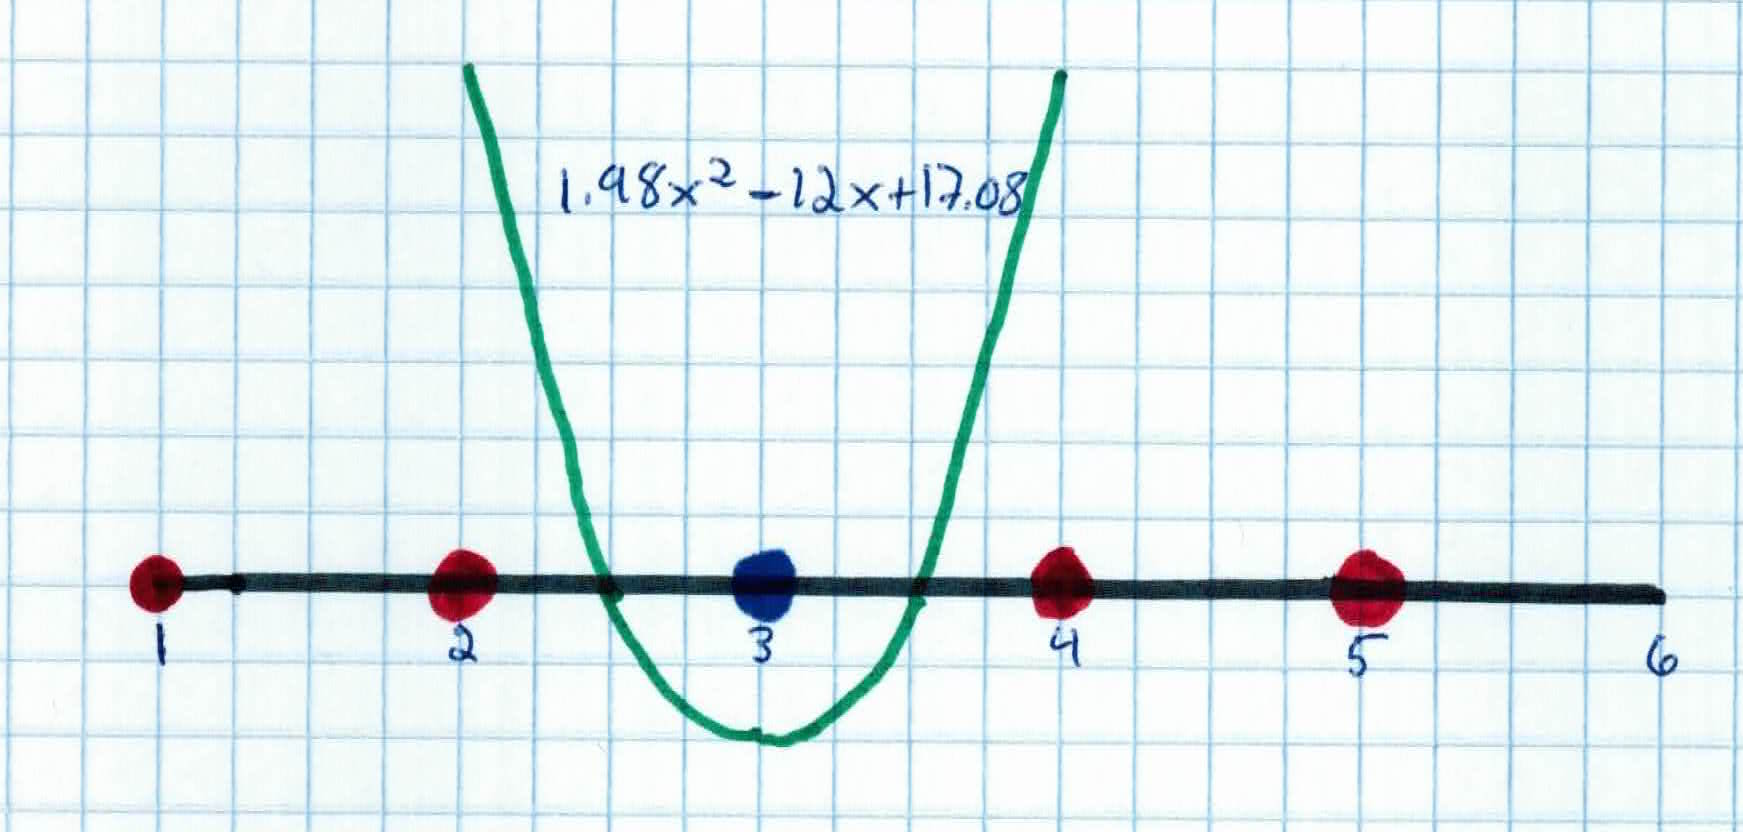 1.98x² -12x+17.08
1 2 3 4 5 6